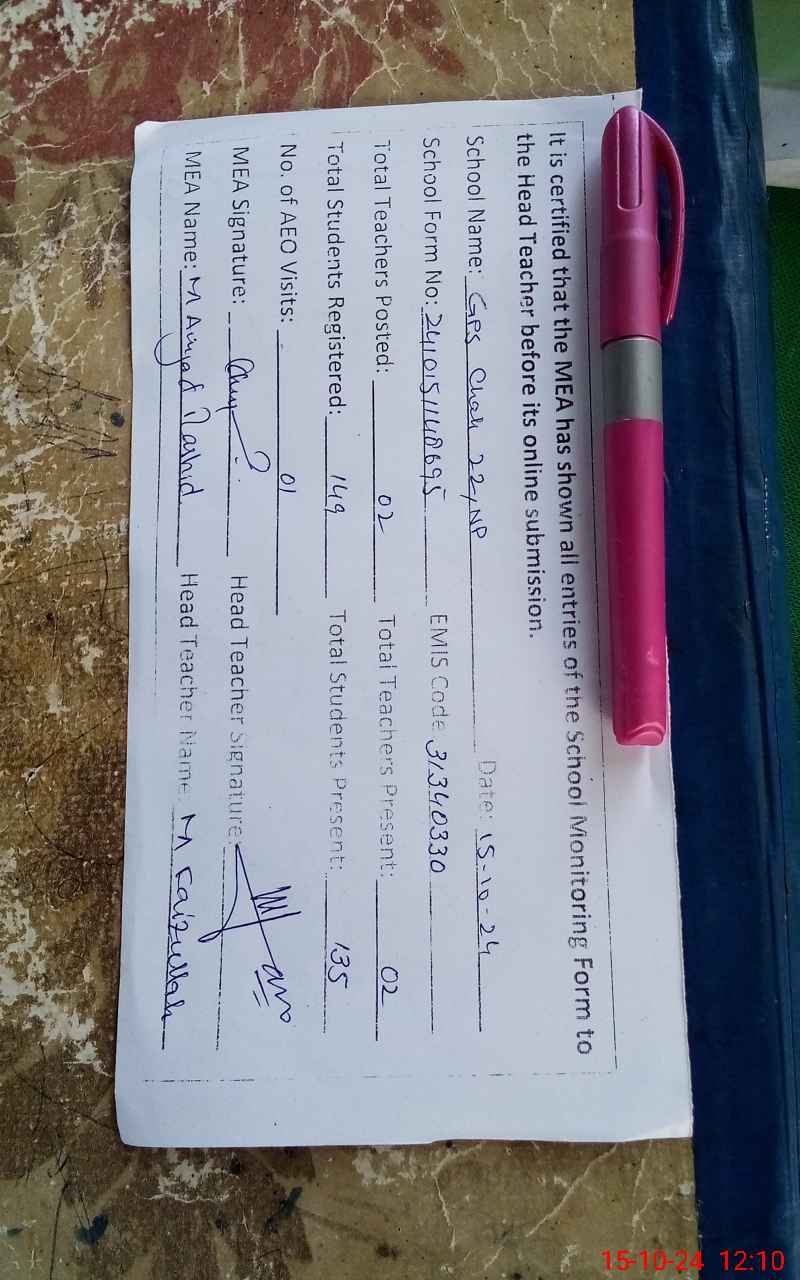 It is certified that the MEA has shown all entries of the School Monitoring Form to
the Head Teacher before its online submission.
School Name: GPS Chak 22/NP Date: 15-10-24
School Form No: EMIS Code 31340330
Total Teachers Posted: 02 Total Teachers Present: 02
Total Students Registered: 149 Total Students Present: 135
No. of AEO Visits: 01
MEA Signature: Head Teacher Signature:
MEA Name: M Rashid Head Teacher Name: M Faizullah
15-10-24 12:10